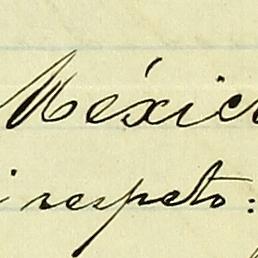 Méxic
i respeto: